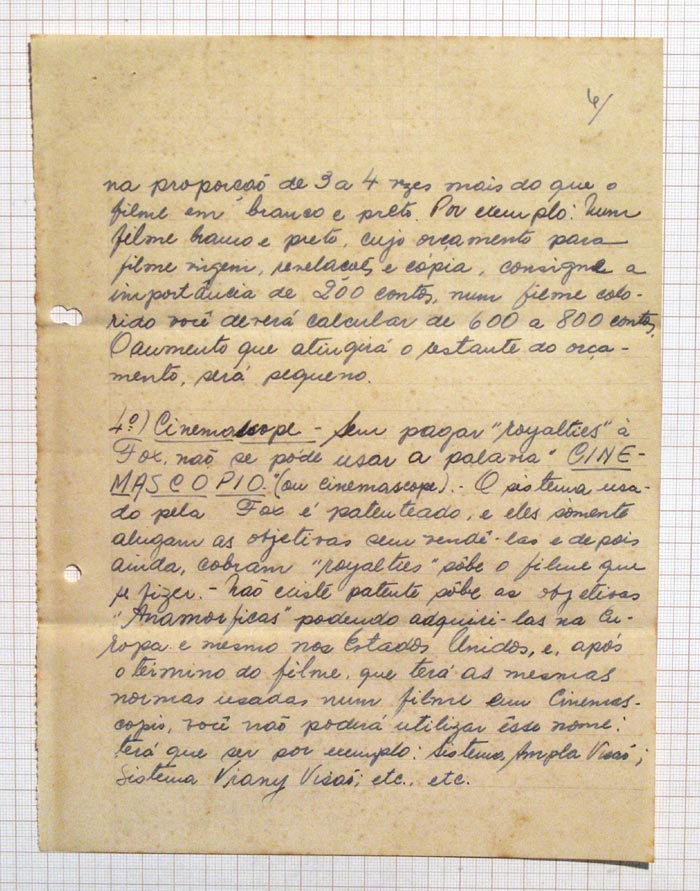 6/
na proporção de 3 a 4 vezes mais do que o
filme em branco e preto. Por exemplo: Num
filme branco e preto, cujo orçamento para
filme virgem, revelações e cópia, consigne a
importância de 200 contos, num filme colo-
rido você deverá calcular de 600 a 800 contos.
O aumento que atingirá o restante do orça-
mento, será pequeno.
4º) Cinemascope - Sem pagar "royalties" à
Fox, não se póde usar a palavra "CINE-
MASCOPIO" (ou cinemascope). - O sistema usa-
do pela Fox é patenteado, e eles somente
alugam as objetivas sem vendê-las e depois
ainda, cobram "royalties" sôbe o filme que
se fizer. - Não existe patente sôbe as objetivas
"Anamorficas" podendo adquiri-las na Eu-
ropa e mesmo nos Estados Unidos, e, após
o termino do filme, que terá as mesmas
normas usadas num filme em Cinemas-
copio, você não poderá utilizar êsse nome:
terá que ser por exemplo: Sistema Ampla Visão;
Sistema Virany Visão; etc., etc.